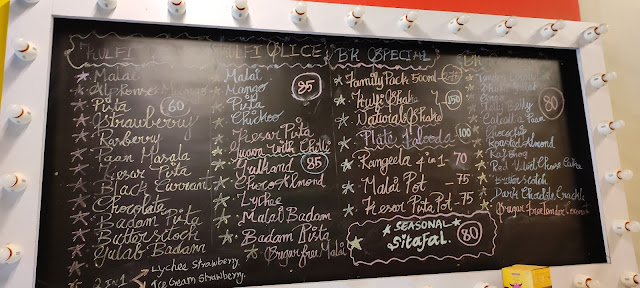 KULFI
Malai
Alphonso Mango
Pista 60
Strawberry
Rasberry
Paan Masala
Kesar Pista
Black Currant
Chocolate
Badam Pista
Butterscotch
Gulab Badam
2 in 1 → Lychee Strawberry
→ Ice Cream Strawberry
KULFI SLICE
Malai
Mango 85
Pista
Chickoo
Kesar Pista
Guava with Chilli
Gulkand 95
Choco Almond
Lychee
Malai Badam
Badam Pista
Sugar free Malai
BK SPECIAL
Family Pack 500ml
Kulfi Shake 150
Natural Shake
Plate Falooda 100
Rangeela 4 in 1 - 70
Malai Pot - 75
Kesar Pista Pot - 75
SEASONAL
Sitafal. 80
BK
Tender Coconut
80
Jelly Belly
Calcutta Paan
Chocochip
Roasted Almond
Rajbhog
Red Velvet Cheese Cake
Butterscotch
Dark Chocolate Crackle
Sugar free Tender Coconut